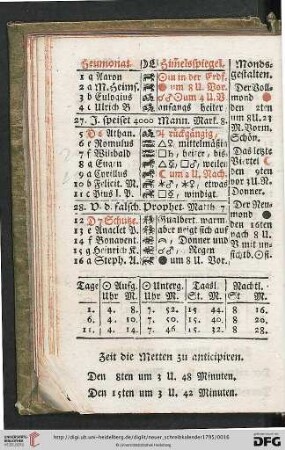 Heumonat. Himelsspiegel. Monds-
gestalten.
1 a Aaron ☉ in der Erdf.
2 a M. Heims. um 8 U. Vor.
3 b Eulogius um 4 U. V
4 c Ulrich B anfangs heiter
Der Voll-
mond
den 2ten
um 8U.23
M. Vorm.
Schön.
27. J. speiset 4000 Mann. Mark. 8.
5 D Athan. ♃ rückgängig,
6 e Romulus mittelmäßig
7 f Wilibald heiter, bis-
8 g weilen
9 a Cyrillus ☾ um 2 U. Nach.
10 b Felicit. M. etwas
11 c Pius I. P. windig.
Das letzte
Viertel ☾
den 9ten
vor 3U.N.
Donner.
28. V. d. falsch. Prophet. Matth 7.
12 D Gualbert. warm
13 e Anaclet P. aber neigt sich auf
14 f Bonavent. Donner und
15 g Heinrich K. Regen
16 a Steph. U. um 8 U. Vor.
Der Neu-
mond
den 16ten
nach 8 U.
V mit un-
sichtb. ☉st.
Tage ☉ Aufg. ☉ Unterg. Taasl. Nachtl.
Uhr M. Uhr M. St. M. St M.
1. 4. 8. 7. 52. 15 44. 8 16.
6. 4. 10. 7. 50. 15 40. 8 20.
11. 4. 14. 7. 46. 15 32. 8 28.
Zeit die Metten zu anticipiren.
Den 8ten um 3 U. 48 Minuten.
Den 15ten um 3 U. 42 Minuten.
http://digi.ub.uni-heidelberg.de/diglit/neuer_schreibkalender1795/0016
© Universitätsbibliothek Heidelberg
UNIVERSITÄTS-
BIBLIOTHEK
HEIDELBERG
gefördert durch die
DFG